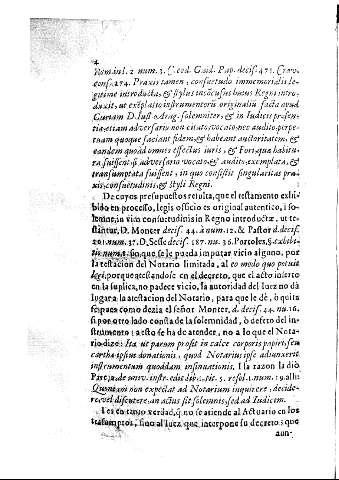 4
Rom. in l. 2 num. 3. C. eod. Guid. Pap. decis. 471. Crav.
cons. 274. Praxis tamen, consuetudo immemorialis le-
gitime introducta, & stylus inconcusus huius Regni intro-
duxit, ut exemplatio instrumentorũ originaliũ facta apud
Curiam D. Iust. Arag. solemniter, & in Iudicis præsen-
tia, etiam adversario non citato, vocato, nec audito, perpe-
tuam quoque faciant fidem, & habeant authoritatem, &
eandem quoad omnes effectus iuris, & Fori, qua habitu-
ra fuissent, si adversario vocato, & audito, exemplata, &
transumptata fuissent, in quo consistit singularitas pra-
xis, consuetudinis, & styli Regni.
De cuyos presupuestos resulta, que el testamento exhi-
bido en processo, legis officio es original autentico, i so-
lemne, in vim consuetudinis in Regno introductæ, ut te-
stantur, D. Monter decis. 44. à num. 12. & Pastor d. decis.
20. num. 37. D. Sesse decis. 187. nu. 36. Portoles, § exhibi-
tis num. sin que se le pueda imputar vicio alguno, por
la testacion del Notario limitada, al eo modo quo potuit
legi, porque atestandose en el decreto, que el acto inserto
en la suplica, no padece vicio, la autoridad del Iuez no dà
lugar a la atestacion del Notario, para que le dè, ò quite
fuerças como dezia el señor Monter, d. decis. 44. nu. 16.
si por otro lado consta de la solemnidad, ò defeto del in-
strumento; a esto se ha de atender, no a lo que el Nota-
rio dize: Ita ut parum prosit in calce corporis papiri, seu
cartha ipsius donationis, quod Notarius ipse adiunxerit
instrumentum quoddam insinuationis. I la razon la diò
Pareja de univ. instr. edit. tit. 3. resol. 1. num. 19. alli:
Quoniam non expectat ad Notarium inquirere, decide-
re, vel discutere, an actus sit solemnis, sed ad Iudicem.
I es en tanto verdad, q̃ no se atiende al Actuario en los
trasumptos, sino al Iuez que interpone su decreto; que
aun-